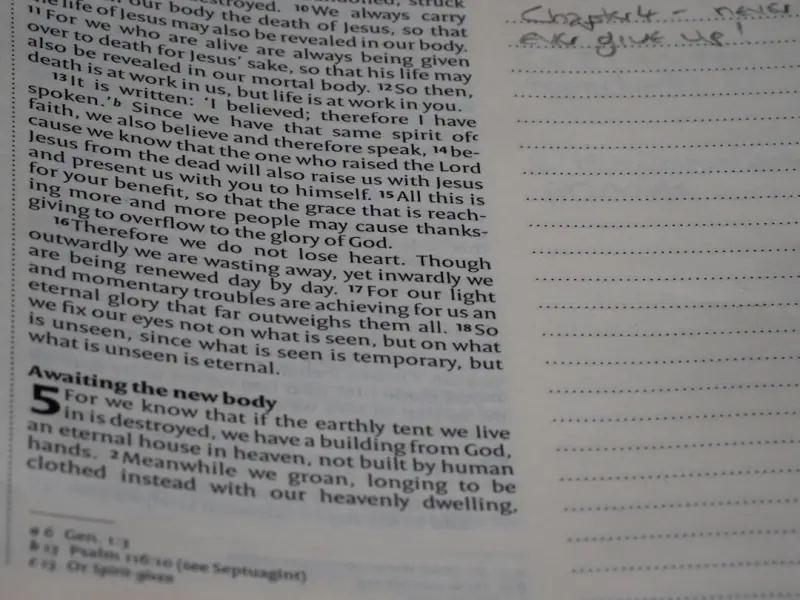 struck
destroyed. 10We always carry
our body the death of Jesus, so that
the life of Jesus may also be revealed in our body.
11For we who are alive are always being given
over to death for Jesus' sake, so that his life may
also be revealed in our mortal body. 12So then,
death is at work in us, but life is at work in you.
13It is written: 'I believed; therefore I have
spoken.'b Since we have that same spirit ofc
faith, we also believe and therefore speak, 14be-
cause we know that the one who raised the Lord
Jesus from the dead will also raise us with Jesus
and present us with you to himself. 15All this is
for your benefit, so that the grace that is reach-
ing more and more people may cause thanks-
giving to overflow to the glory of God.
16Therefore we do not lose heart. Though
outwardly we are wasting away, yet inwardly we
are being renewed day by day. 17For our light
and momentary troubles are achieving for us an
eternal glory that far outweighs them all. 18So
we fix our eyes not on what is seen, but on what
is unseen, since what is seen is temporary, but
what is unseen is eternal.
Awaiting the new body
5 For we know that if the earthly tent we live
in is destroyed, we have a building from God,
an eternal house in heaven, not built by human
hands. 2Meanwhile we groan, longing to be
clothed instead with our heavenly dwelling,
a 6 Gen. 1:3
b 13 Psalm 116:10 (see Septuagint)
c 13 Or Spirit-given
Chapter 4 - never
ever give up!